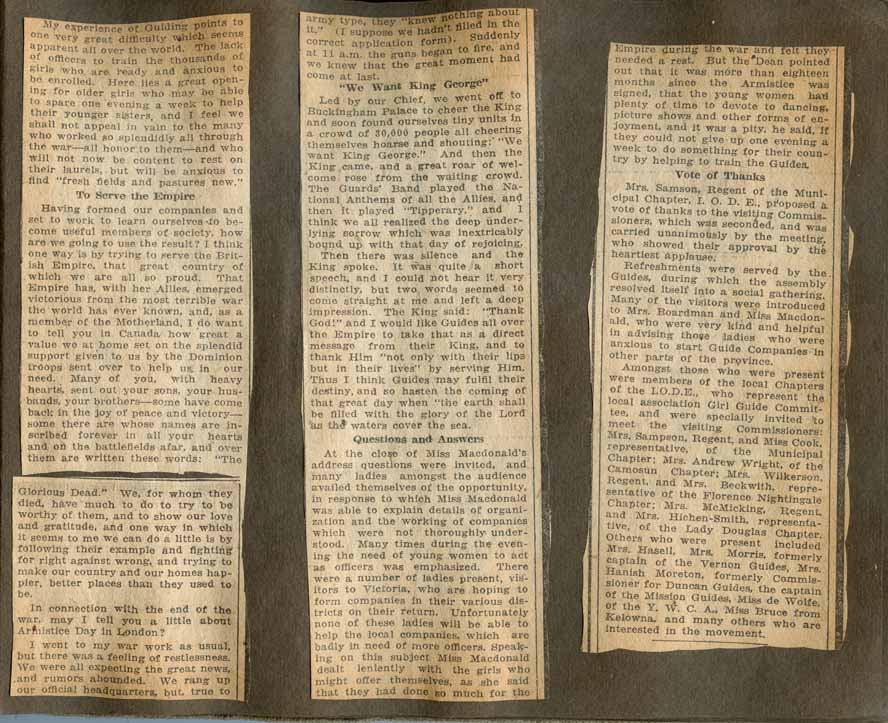 My experience of Guiding points to
one very great difficulty which seems
apparent all over the world. The lack
of officers to train the thousands of
girls who are ready and anxious to
be enrolled. Here lies a great open-
ing for older girls who may be able
to spare one evening a week to help
their younger sisters, and I feel we
shall not appeal in vain to the many
who worked so splendidly all through
the war—all honor to them—and who
will not now be content to rest on
their laurels, but will be anxious to
find "fresh fields and pastures new."
To Serve the Empire
Having formed our companies and
set to work to learn ourselves to be-
come useful members of society, how
are we going to use the result? I think
one way is by trying to serve the Brit-
ish Empire, that great country of
which we are all so proud. That
Empire has, with her Allies, emerged
victorious from the most terrible war
the world has ever known, and, as a
member of the Motherland, I do want
to tell you in Canada how great a
value we at home set on the splendid
support given to us by the Dominion
troops sent over to help us in our
need. Many of you, with heavy
hearts, sent out your sons, your hus-
bands, your brothers—some have come
back in the joy of peace and victory—
some there are whose names are in-
scribed forever in all your hearts
and on the battlefields afar, and over
them are written these words: "The
Glorious Dead." We, for whom they
died, have much to do to try to be
worthy of them, and to show our love
and gratitude, and one way in which
it seems to me we can do a little is by
following their example and fighting
for right against wrong, and trying to
make our country and our homes hap-
pier, better places than they used to
be.
In connection with the end of the
war, may I tell you a little about
Armistice Day in London?
I went to my war work as usual,
but there was a feeling of restlessness.
We were all expecting the great news,
and rumors abounded. We rang up
our official headquarters, but, true to
army type, they "knew nothing about
it." (I suppose we hadn't filled in the
correct application form). Suddenly
at 11 a.m. the guns began to fire, and
we knew that the great moment had
come at last.
"We Want King George"
Led by our Chief, we went off to
Buckingham Palace to cheer the King
and soon found ourselves tiny units in
a crowd of 30,000 people all cheering
themselves hoarse and shouting: "We
want King George." And then the
King came, and a great roar of wel-
come rose from the waiting crowd.
The Guards' Band played the Na-
tional Anthems of all the Allies, and
then it played "Tipperary," and I
think we all realized the deep under-
lying sorrow which was inextricably
bound up with that day of rejoicing.
Then there was silence and the
King spoke. It was quite a short
speech, and I could not hear it very
distinctly, but two words seemed to
come straight at me and left a deep
impression. The King said: "Thank
God!" and I would like Guides all over
the Empire to take that as a direct
message from their King, and to
thank Him "not only with their lips
but in their lives" by serving Him.
Thus I think Guides may fulfil their
destiny, and so hasten the coming of
the great day when "the earth shall
be filled with the glory of the Lord
as the waters cover the sea.
Questions and Answers
At the close of Miss Macdonald's
address questions were invited, and
many ladies amongst the audience
availed themselves of the opportunity,
in response to which Miss Macdonald
was able to explain details of organi-
zation and the working of companies
which were not thoroughly under-
stood. Many times during the even-
ing the need of young women to act
as officers was emphasized. There
were a number of ladies present, vis-
itors to Victoria, who are hoping to
form companies in their various dis-
tricts on their return. Unfortunately
none of these ladies will be able to
help the local companies, which are
badly in need of more officers. Speak-
ing on this subject Miss Macdonald
dealt leniently with the girls who
might offer themselves, as she said
that they had done so much for the
Empire during the war and felt they
needed a rest. But the Dean pointed
out that it was more than eighteen
months since the Armistice was
signed, that the young women had
plenty of time to devote to dancing,
picture shows and other forms of en-
joyment, and it was a pity, he said, if
they could not give up one evening a
week to do something for their coun-
try by helping to train the Guides.
Vote of Thanks
Mrs. Samson, Regent of the Muni-
cipal Chapter, I. O. D. E., proposed a
vote of thanks to the visiting Commis-
sioners, which was seconded, and was
carried unanimously by the meeting,
who showed their approval by the
heartiest applause.
Refreshments were served by the
Guides, during which the assembly
resolved itself into a social gathering.
Many of the visitors were introduced
to Mrs. Boardman and Miss Macdon-
ald, who were very kind and helpful
in advising those ladies who were
anxious to start Guide Companies in
other parts of the province.
Amongst those who were present
were members of the local Chapters
of the I.O.D.E., who represent the
local association Girl Guide Commit-
tee, and were specially invited to
meet the visiting Commissioners:
Mrs. Sampson, Regent, and Miss Cook,
representative, of the Municipal
Chapter; Mrs. Andrew Wright, of the
Camosun Chapter; Mrs. Wilkerson,
Regent, and Mrs. Beckwith, repre-
sentative of the Florence Nightingale
Chapter; Mrs. McMicking, Regent,
and Mrs. Hichen-Smith, representa-
tive, of the Lady Douglas Chapter.
Others who were present included
Mrs. Hasell, Mrs. Morris, formerly
captain of the Vernon Guides, Mrs.
Hanish Moreton, formerly Commis-
sioner for Duncan Guides, the captain
of the Mission Guides, Miss de Wolfe,
of the Y. W. C. A., Miss Bruce from
Kelowna, and many others who are
interested in the movement.